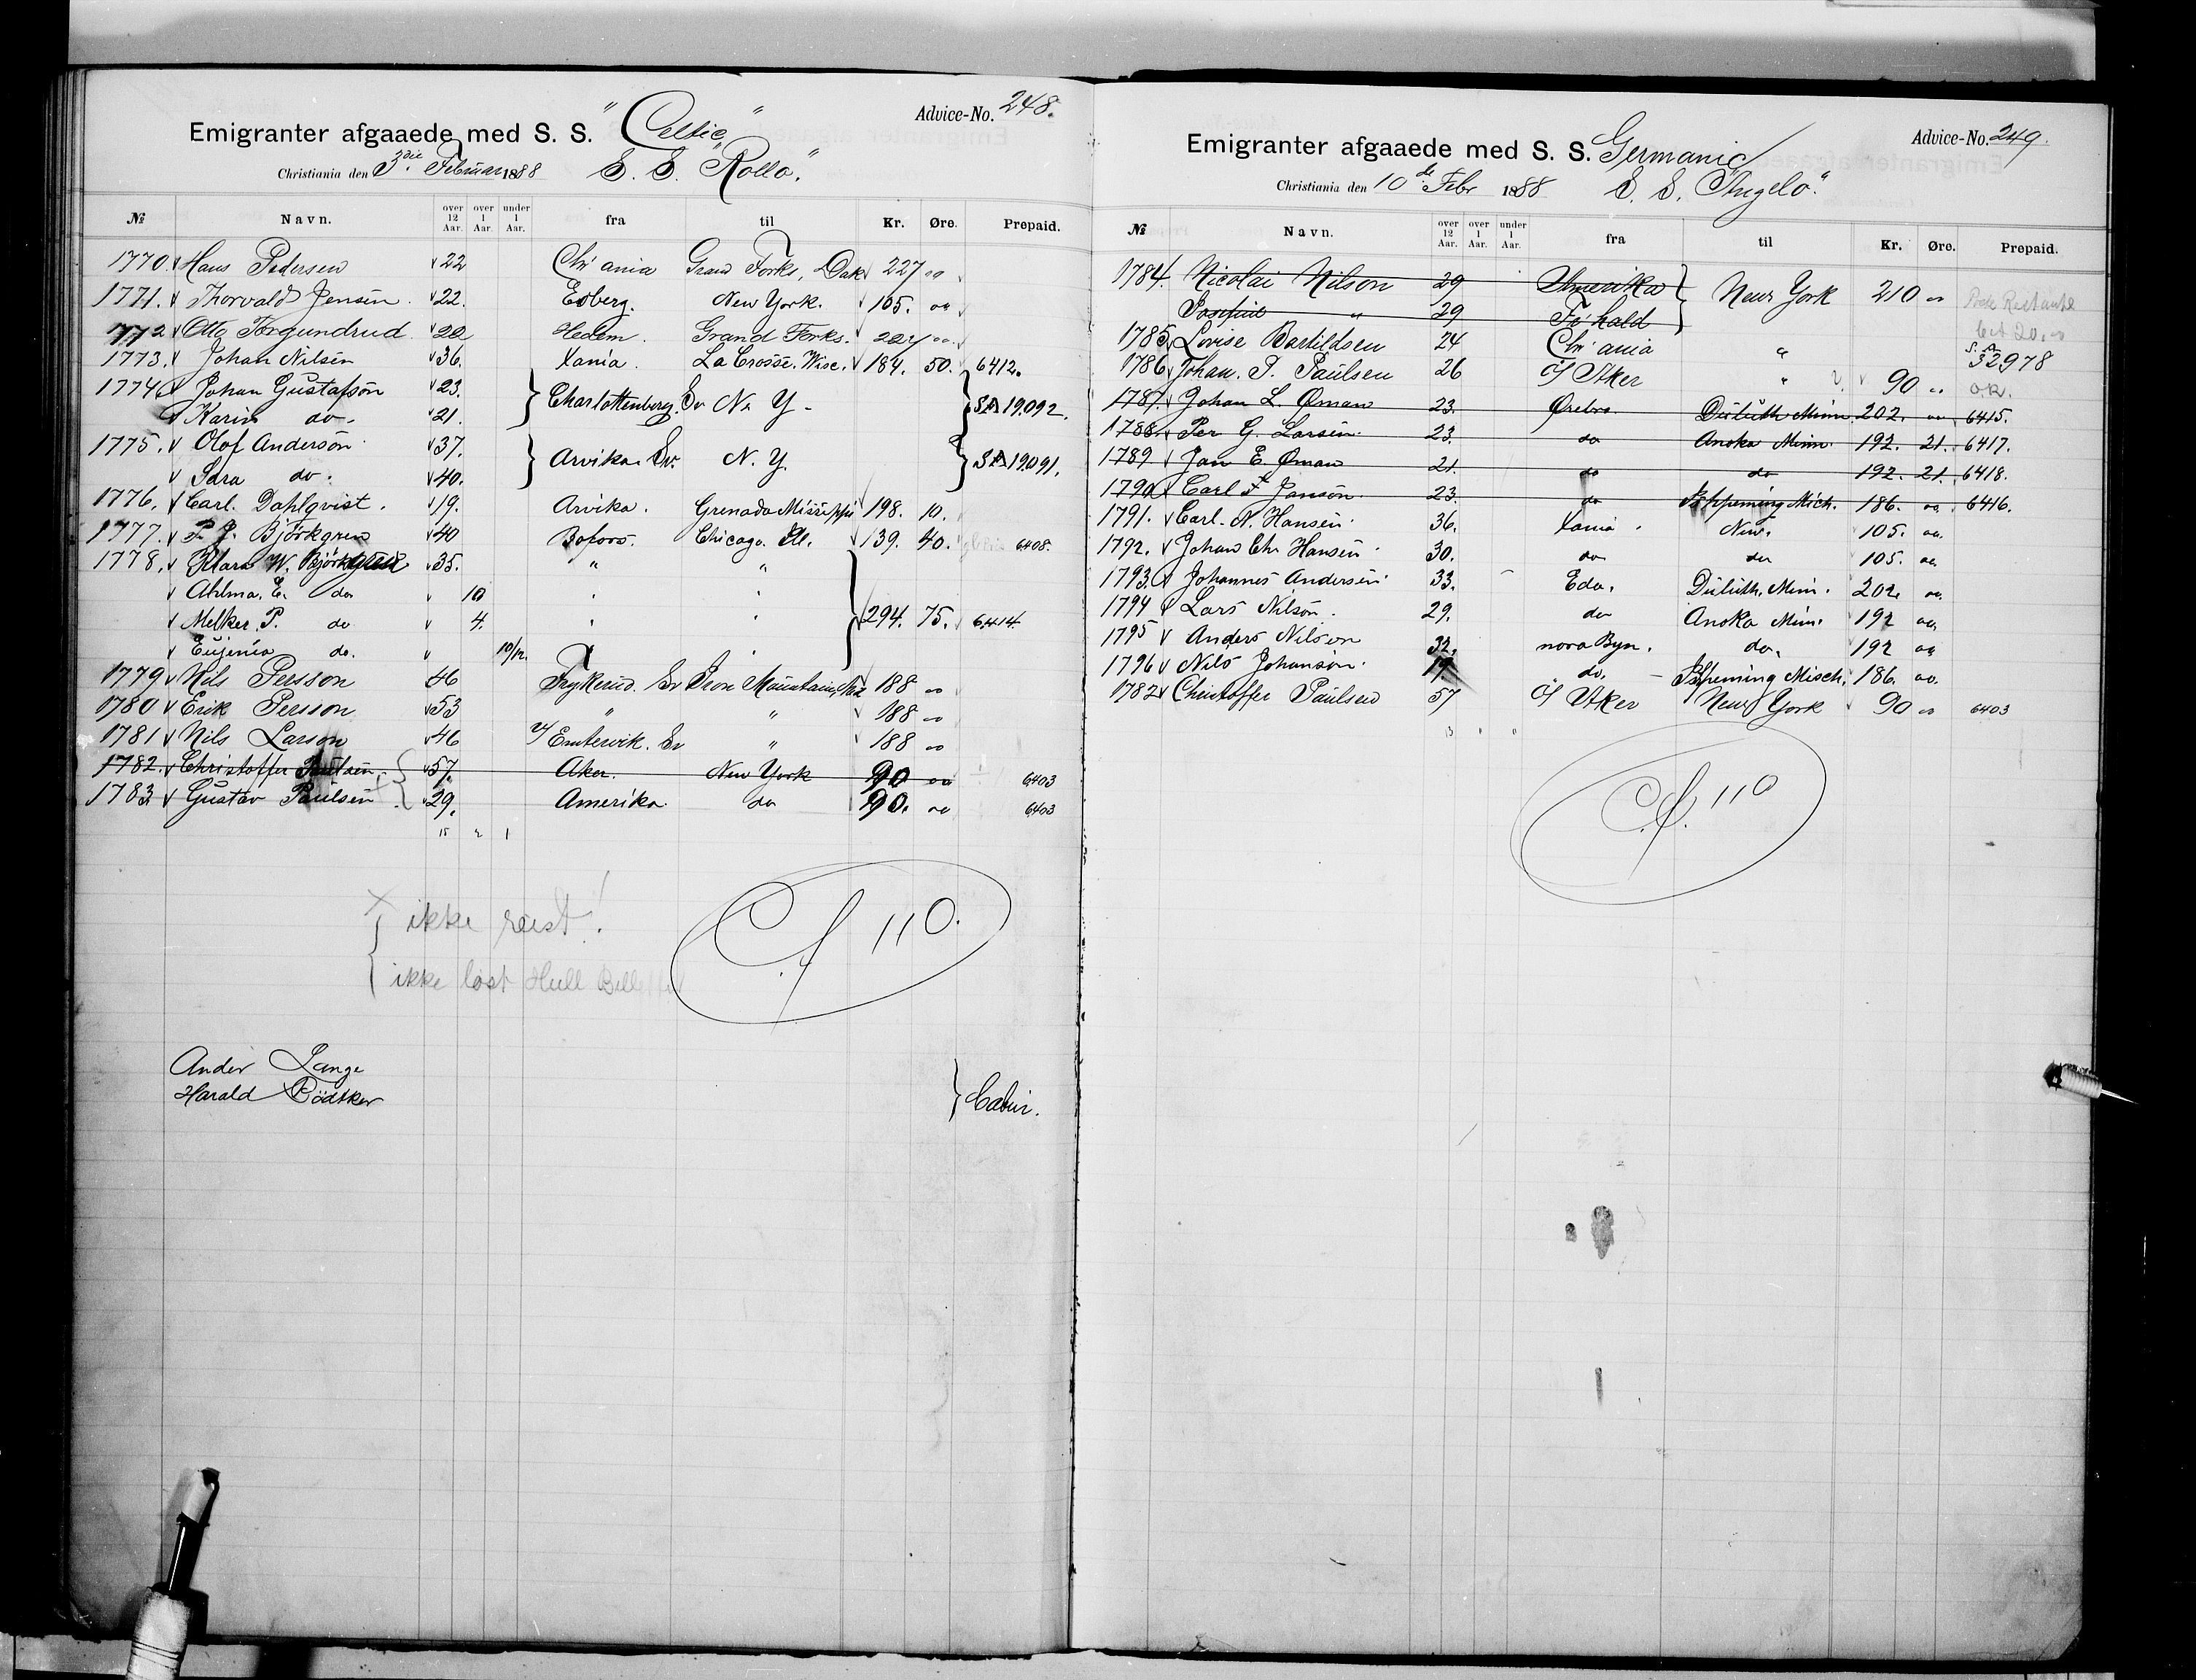 Emigranter afgaaede med S. S. "Celtic" Advice-No. 248.
Christiania den 3die Februar 1888 S. S. "Rollo."
№ Navn. over 12 Aar. over 1 Aar. under 1 Aar. fra til Kr. Øre. Prepaid.
1770. Hans Pedersen 22 Chr ania Grand Forks, Dak 227 oo
1771. Thorvald Jensen. 22. Esberg. New York. 105. oo
1772 Otto Torgundrud 22 Hedem. Grand Forks. 227 oo.
1773. Johan Nilsen 36. Xania. La Crosse. Wisc. 184. 50. 6412.
1774 Johan Gustafson 23. Charlottenberg. Sv N. Y. SA 19092.
Karin do. 21.
1775. Olof Anderson 37. Arvika. Sv. N. Y. SA 19091.
Sara do. 40.
1776. Carl. Dahlqvist. 19. Arvika. Grenada Missisippi 198. 10.
1777. P. J. Björkgren 40 Bofors. Chicago. Ill. 139. 40. 6408.
1778. Klara W. Björkgren 35. " "
Ahlma. E. do 10 " "
Melker. P. do 4. " " 294. 75. 6414.
Eugenia do. 10/12. "
1779 Nils Persson 46 Frykerud. Sv Iron Mountain, 188 oo
1780 Erik Persson 53 " " 188 oo
1781 Nils Larson 46 Ø/ Emtervik. Sv " 188 oo
1782. Christoffer Paulsen. 57. Aker. New York 90 oo 6403
1783. Gustav Paulsen 29. Amerika. do 90. oo 6403
15 2 1
ikke reist!
ikke løst Hull Billetter
C.f. 110.
Ander Lange
Harald Bödtker Cabin.
Emigranter afgaaede med S. S. Germanic Advice-No. 249.
Christiania den 10de Febr 1888 S. S. "Angelo".
№ Navn. over 12 Aar. over 1 Aar. under 1 Aar. fra til Kr. Øre. Prepaid.
1784. Nicolai Nilson 29 Amerika New York 210 oo Poste Restante
Josefine " 29 Fr hald
1785. Lovise Bartildsen 24 Chr ania " S. A. 32978
1786 Johan. P. Paulsen 26 Ø/ Aker " 90 oo O.K.
1787. Johan L. Öman 23. Ørebro. Duluth Minn. 202. oo 6415.
1788. Per G. Larsen 23. do Anoka Minn. 192. 21. 6417.
1789 Jan E. Öman 21. do do 192. 21. 6418.
1790 Carl F Janson 23. do Ishpeming Mich. 186. oo. 6416.
1791. Carl. A. Hansen 36. Xania. New. 105. oo.
1792. Johan Chr Hansen 30. do do 105. oo
1793. Johannes Andersen 33. Eda. Duluth. Minn. 202. oo.
1794 Lars Nilson. 29. do Anoka Minn. 192 oo.
1795 Anders Nilson 32. nora Byn. do. 192 oo
1796 Nils Johanson. 19. do. Ishpeming Misch. 186. oo.
1782 Christoffer Paulsen 57 Ø/ Aker New York 90 oo 6403
13 " "
C.f. 110